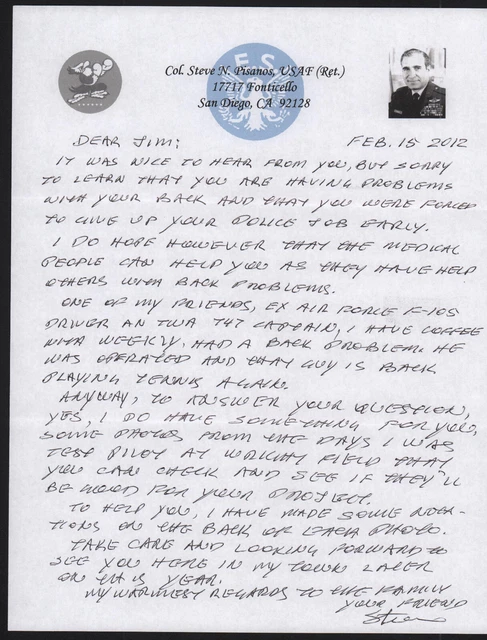 E S
Col. Steve N. Pisanos, USAF (Ret.)
17717 Fonticello
San Diego, CA 92128
DEAR JIM: FEB. 15 2012
IT WAS NICE TO HEAR FROM YOU, BUT SORRY
TO LEARN THAT YOU ARE HAVING PROBLEMS
WITH YOUR BACK AND THAT YOU WERE FORCED
TO GIVE UP YOUR POLICE JOB EARLY.
I DO HOPE HOWEVER THAT THE MEDICAL
PEOPLE CAN HELP YOU AS THEY HAVE HELP
OTHERS WITH BACK PROBLEMS.
ONE OF MY FRIENDS, EX AIR FORCE F-105
DRIVER AN TWA 747 CAPTAIN, I HAVE COFFEE
WITH WEEKLY, HAD A BACK PROBLEM. HE
WAS OPERATED AND THAT GUY IS BACK
PLAYING TENNIS AGAIN.
ANYWAY, TO ANSWER YOUR QUESTION,
YES, I DO HAVE SOMETHING FOR YOU,
SOME PHOTOS FROM THE DAYS I WAS
TEST PILOT AT WRIGHT FIELD THAT
YOU CAN CHECK AND SEE IF THEY'LL
BE GOOD FOR YOUR PROJECT.
TO HELP YOU, I HAVE MADE SOME NOTA-
TIONS ON THE BACK OF EACH PHOTO.
TAKE CARE AND LOOKING FORWARD TO
SEE YOU HERE IN MY TOWN LATER
ON THIS YEAR.
MY WARMEST REGARDS TO THE FAMILY
YOUR FRIEND
Steve